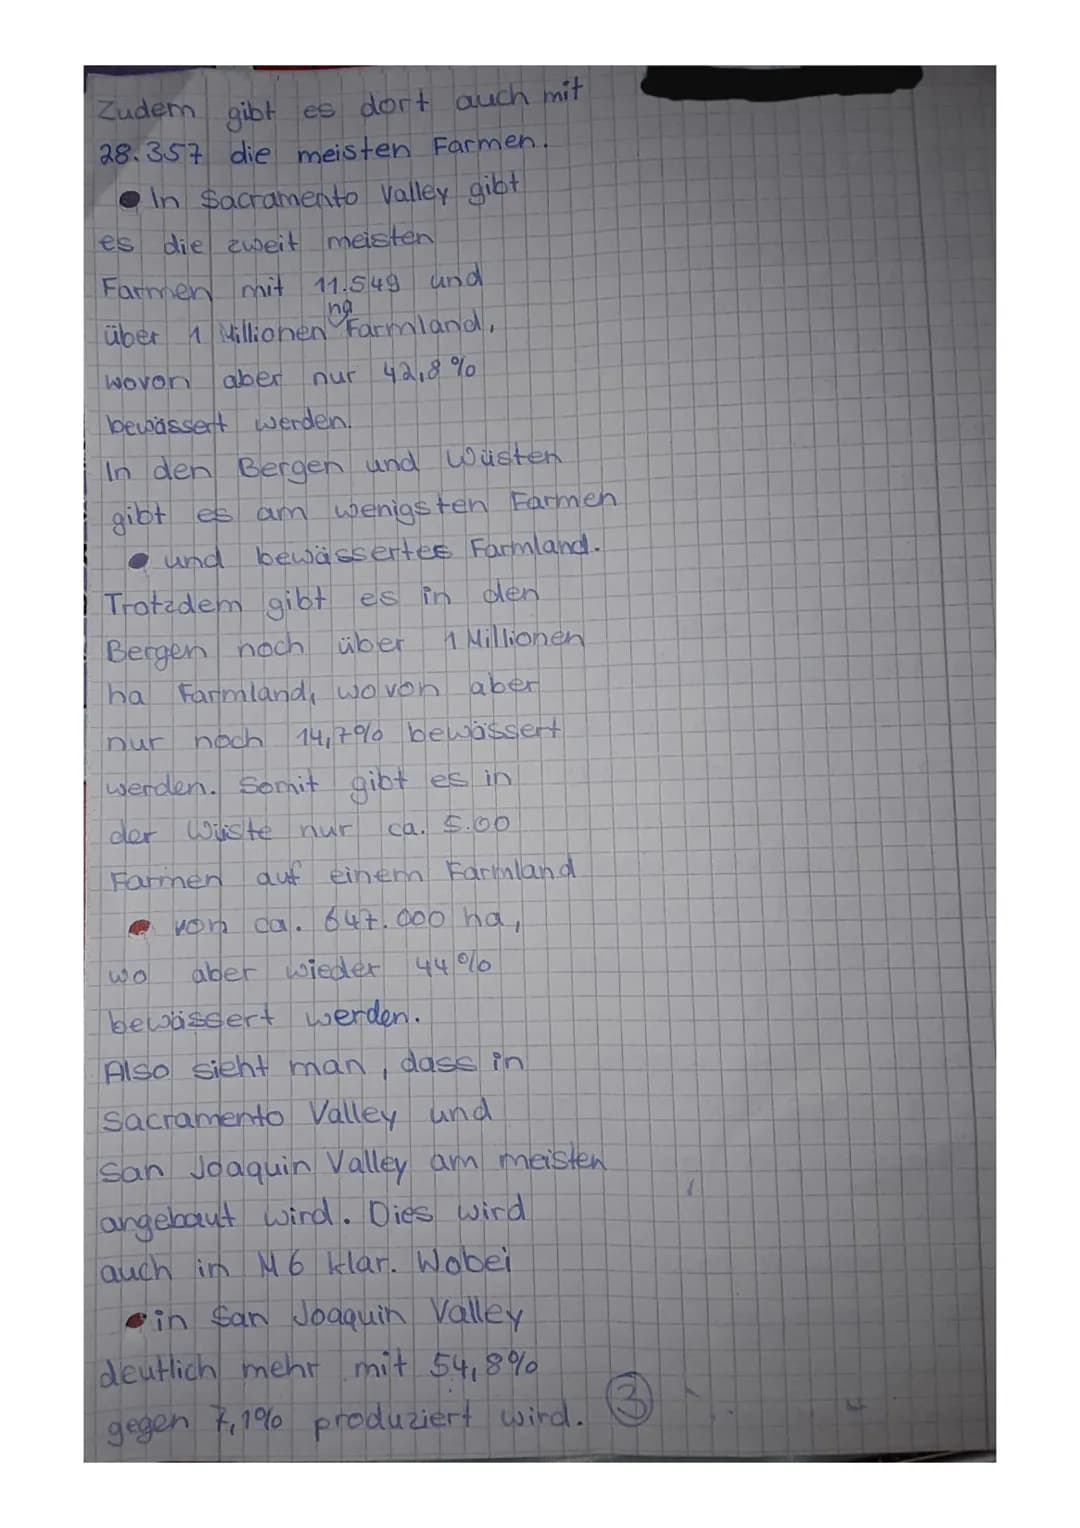 Zudem gibt es dort auch mit
28.357 die meisten Farmen.
In Sacramento Valley gibt
es die zweit meisten
Farmen mit 11.549 und
ha
über 1 Millionen Farmland,
wovon aber nur 42,8%
bewässert werden.
In den Bergen und Wüsten
gibt es am wenigsten Farmen
und bewässertes Farmland.
Trotzdem gibt es in den
Bergen noch über 1 Millionen
ha Farmland, wovon aber
nur noch 14,7% bewässert
werden. Somit gibt es in
der Wüste nur ca. 5.00
Farmen auf einem Farmland
von ca. 647.000 ha,
wo aber wieder 44%
bewässert werden.
Also sieht man, dass in
Sacramento Valley und
San Joaquin Valley am meisten
angebaut wird. Dies wird
auch in M6 klar. Wobei
in San Joaquin Valley
deutlich mehr mit 54,8%
gegen 7,1% produziert wird. 3